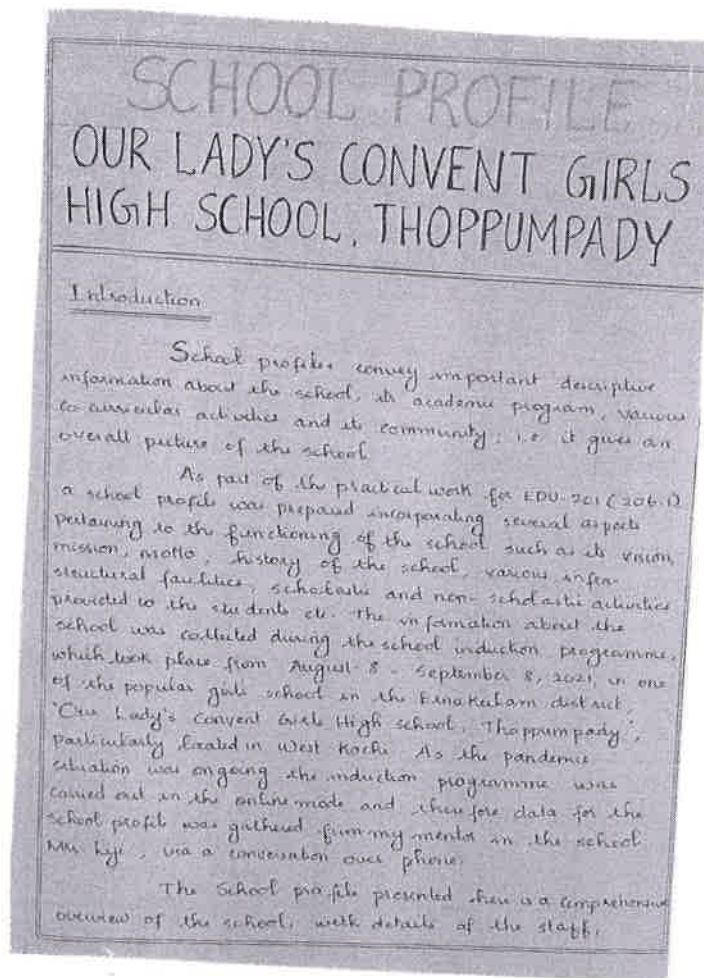 SCHOOL PROFILE
OUR LADY'S CONVENT GIRLS
HIGH SCHOOL, THOPPUMPADY
Introduction
School profiles convey important descriptive
information about the school, its academic program, various
co-curricular activities and its community, i.e it gives an
overall picture of the school.
As part of the practical work for EDU-201 (206.1)
a school profile was prepared incorporating several aspects
pertaining to the functioning of the school such as its vision,
mission, motto, history of the school, various infra-
structural facilities, scholastic and non-scholastic activities
provided to the students etc. The information about the
school was collected during the school induction programme,
which took place from August-8 - September 8, 2021, in one
of the popular girls school in the Ernakulam district,
'Our Lady's Convent Girls High school, Thoppumpady',
particularly located in West Kochi. As the pandemic
situation was ongoing the induction programme was
carried out in the online mode and therefore data for the
school profile was gathered from my mentor in the school
, via a conversation over phone.
The School profile presented here is a comprehensive
overview of the school, with details of the staff,